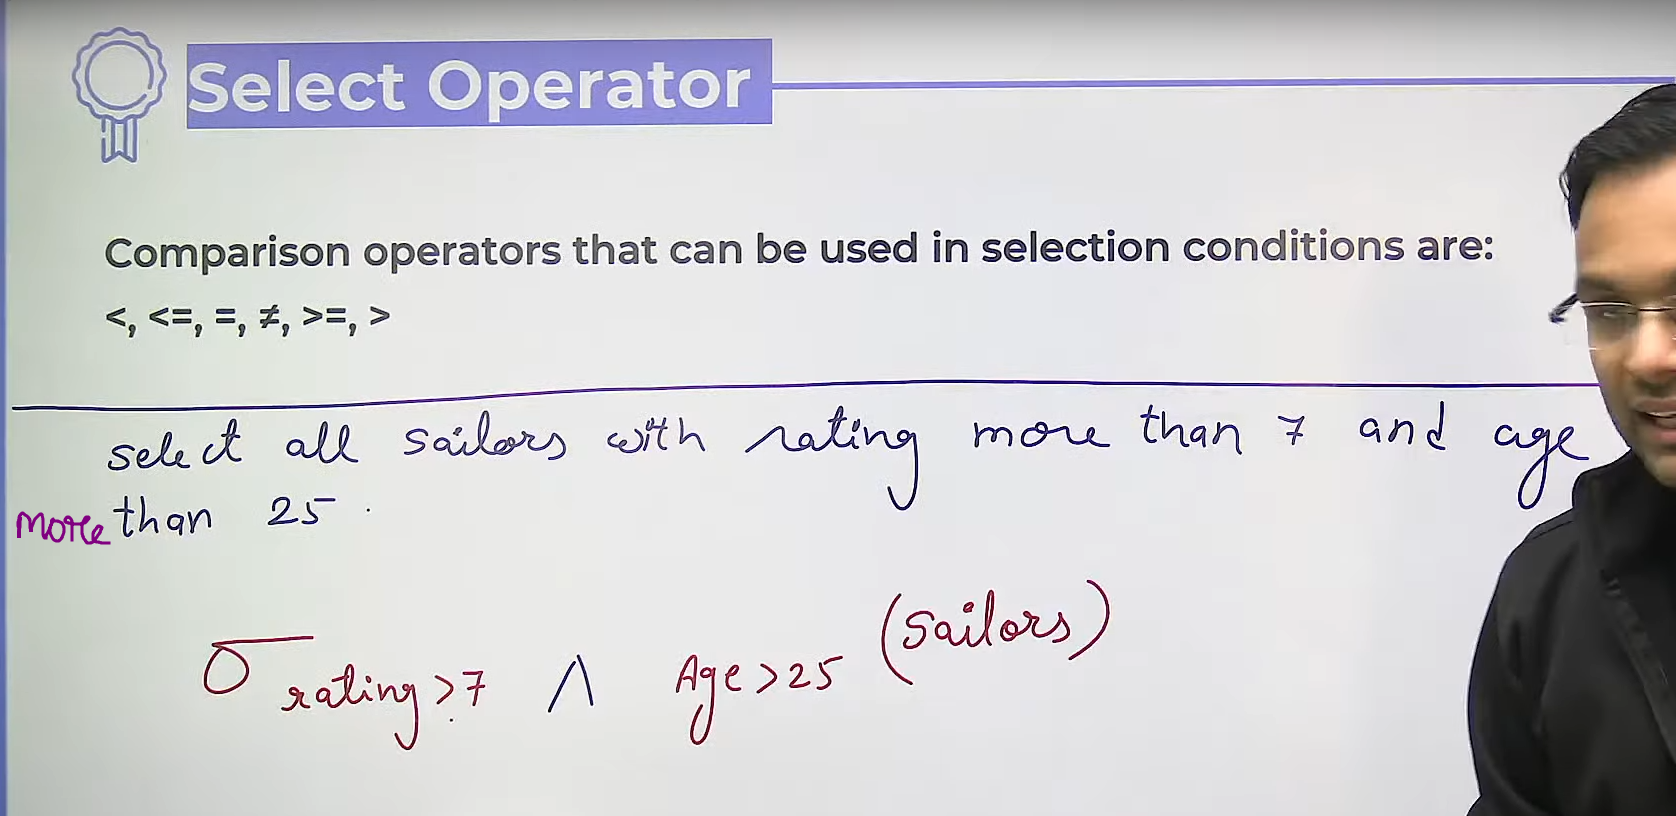 Select Operator
Comparison operators that can be used in selection conditions are:
<, <=, =, ≠, >=, >
select all sailors with rating more than 7 and age
more than 25.
σ rating>7 ∧ Age>25 (Sailors)